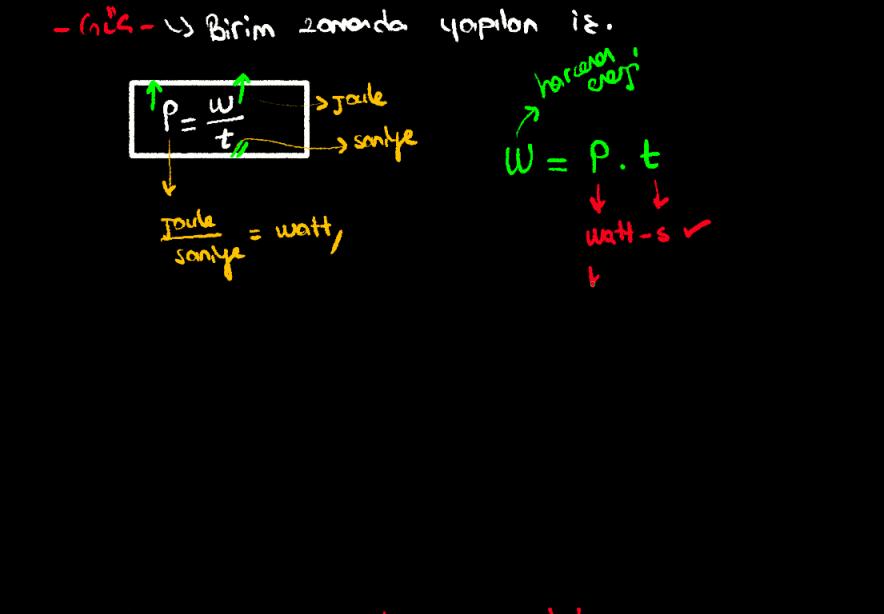 - Güç - ↪ Birim zamanda yapılan iş.
P = W / t
→ Joule
→ saniye
Joule / saniye = watt,
harcanan enerji
W = P . t
watt - s ✓